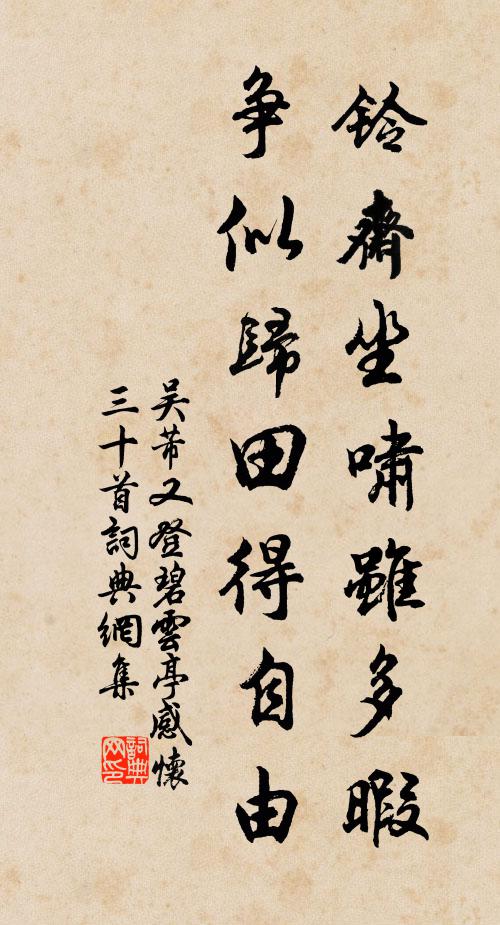 鈴齋坐嘯雖多暇
争似歸田得自由
吴芾又登碧雲亭感懷
三十首詞典網集
詞典网印